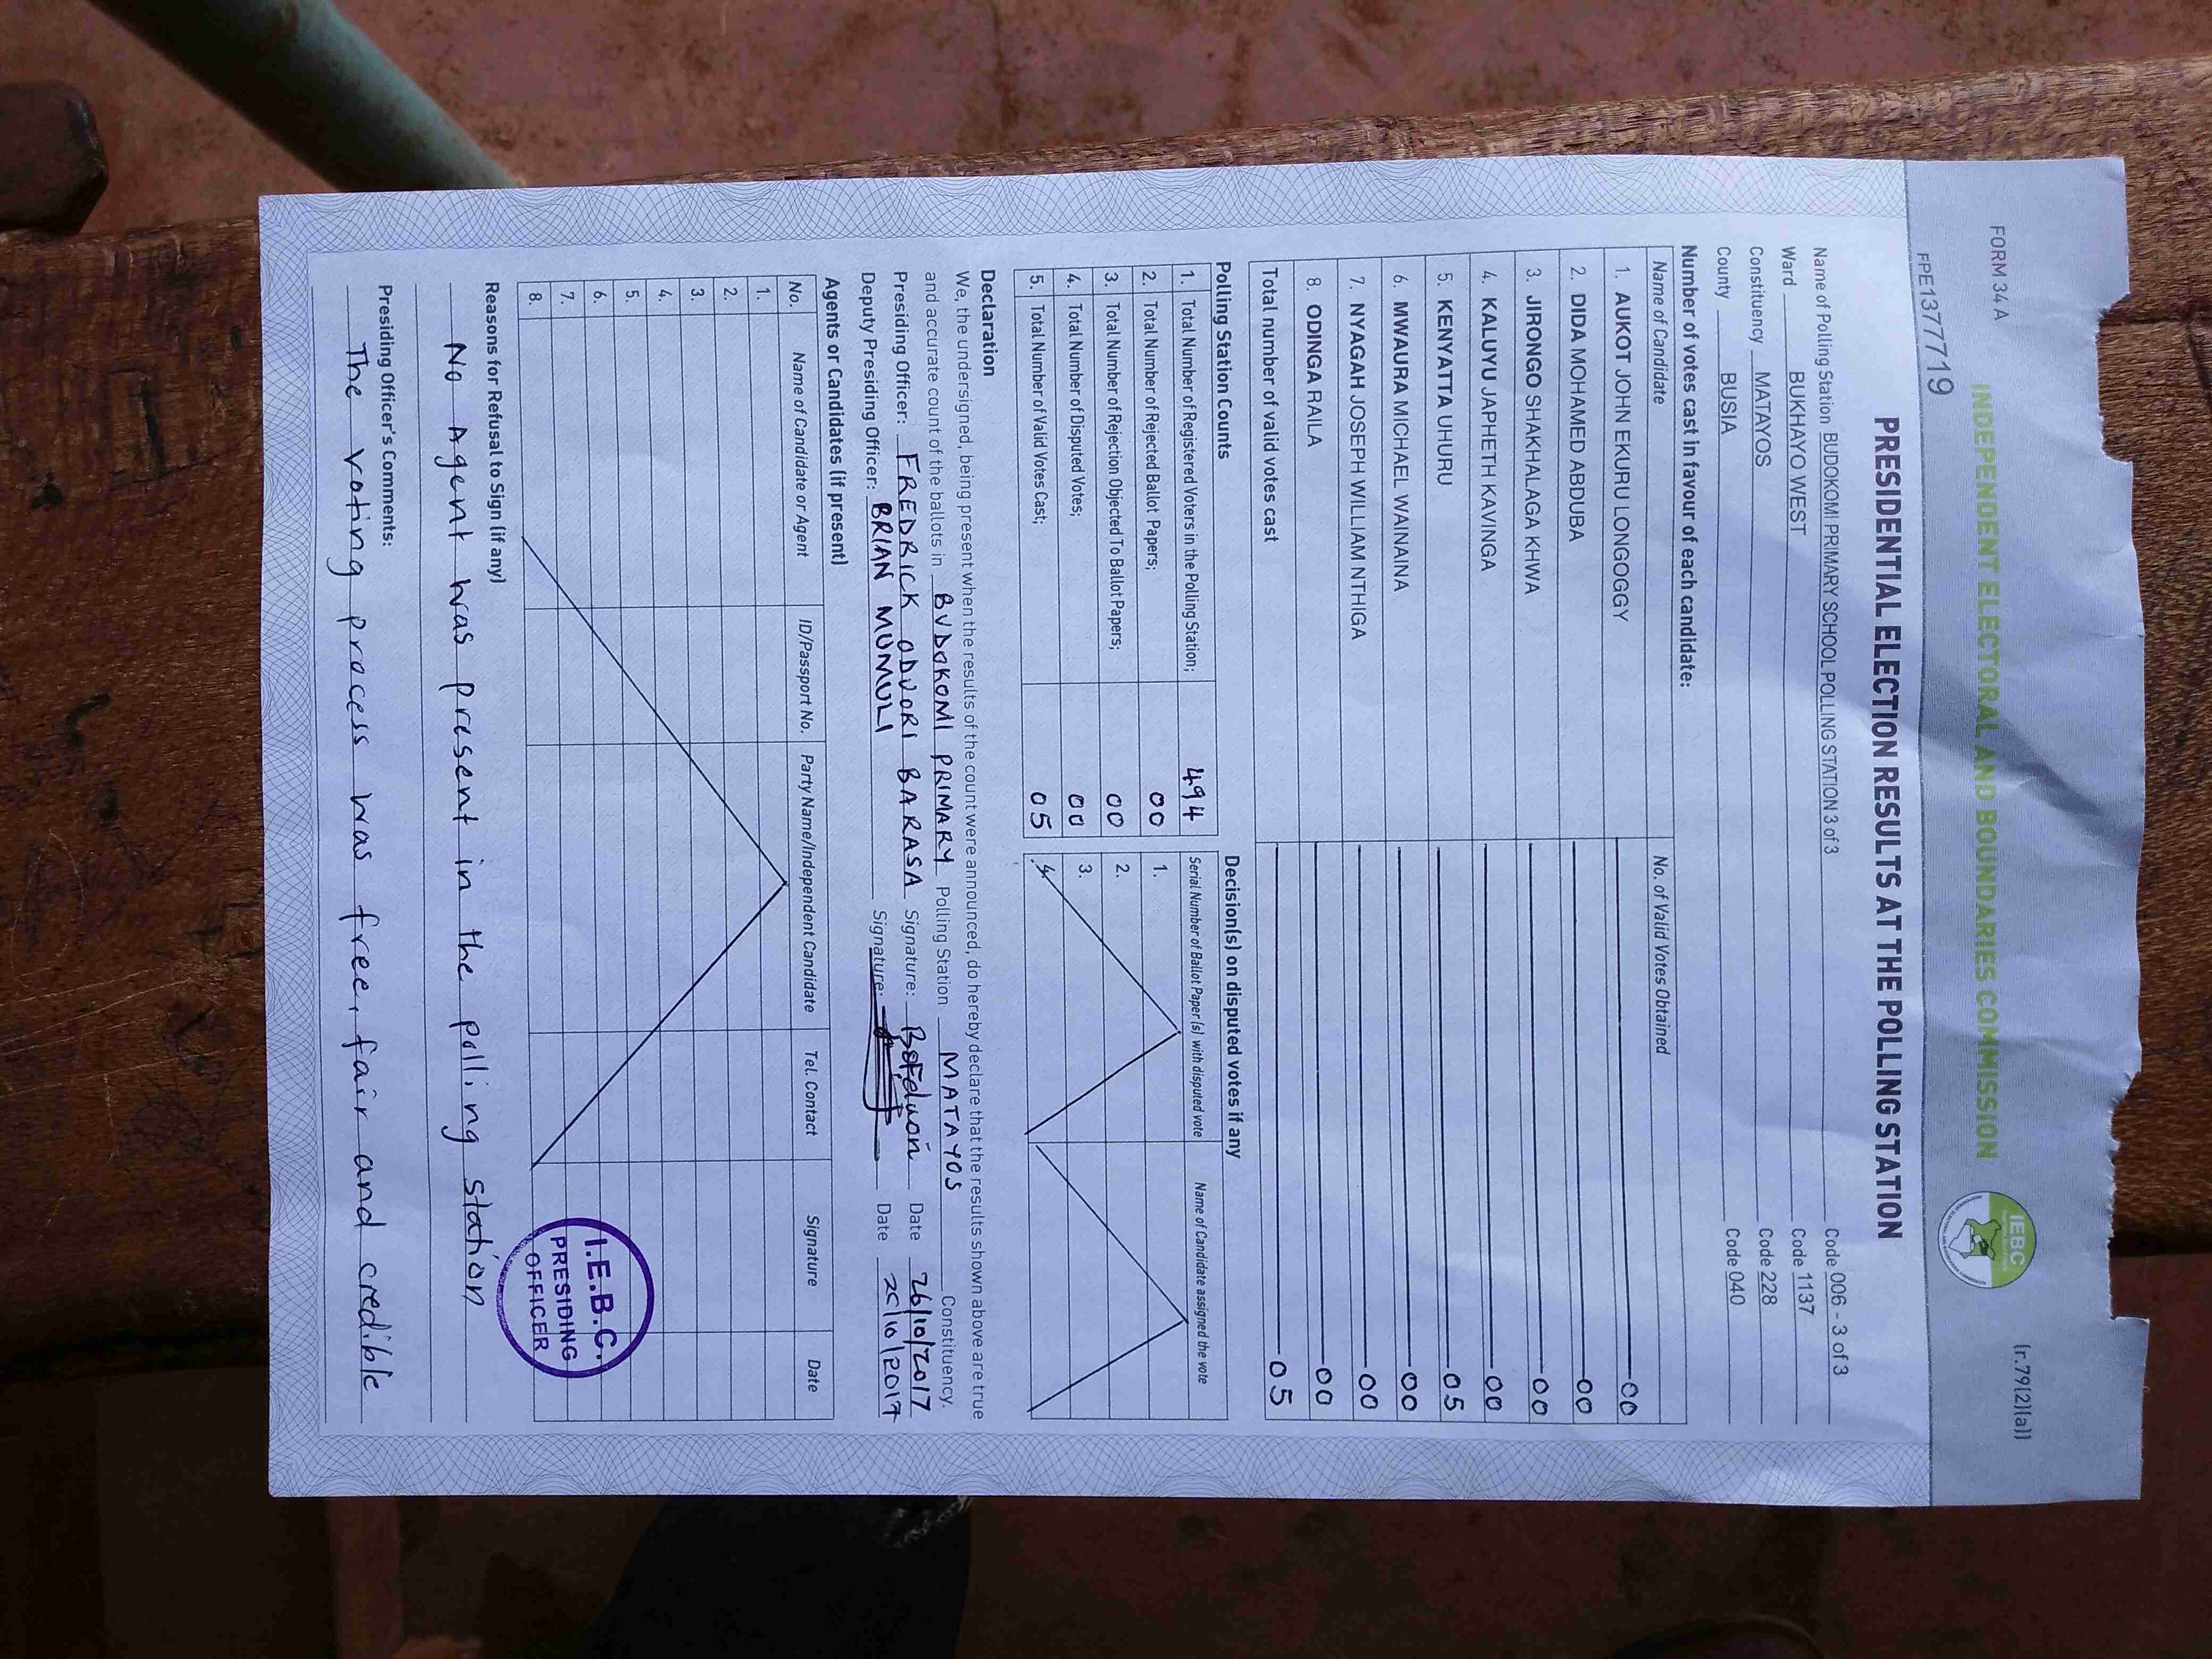 FORM 34 A
(r.79(2)(a))
INDEPENDENT ELECTORAL AND BOUNDARIES COMMISSION
IEBC
FPE1377719
PRESIDENTIAL ELECTION RESULTS AT THE POLLING STATION
Name of Polling Station BUDOKOMI PRIMARY SCHOOL POLLING STATION 3 of 3 Code 006 - 3 of 3
Ward BUKHAYO WEST Code 1137
Constituency MATAYOS Code 228
County BUSIA Code 040
Number of votes cast in favour of each candidate:
Name of Candidate No. of Valid Votes Obtained
1. AUKOT JOHN EKURU LONGOGGY 00
2. DIDA MOHAMED ABDUBA 00
3. JIRONGO SHAKHALAGA KHWA 00
4. KALUYU JAPHETH KAVINGA 00
5. KENYATTA UHURU 05
6. MWAURA MICHAEL WAINAINA 00
7. NYAGAH JOSEPH WILLIAM NTHIGA 00
8. ODINGA RAILA 00
Total number of valid votes cast 05
Polling Station Counts
1. Total Number of Registered Voters in the Polling Station; 494
2. Total Number of Rejected Ballot Papers; 00
3. Total Number of Rejection Objected To Ballot Papers; 00
4. Total Number of Disputed Votes; 00
5. Total Number of Valid Votes Cast; 05
Decision(s) on disputed votes if any
Serial Number of Ballot Paper (s) with disputed vote Name of Candidate assigned the vote
1.
2.
3.
4.
Declaration
We, the undersigned, being present when the results of the count were announced, do hereby declare that the results shown above are true
and accurate count of the ballots in BUDOKOMI PRIMARY Polling Station MATAYOS Constituency.
Presiding Officer: FREDRICK ODUORI BARASA Signature: Date 26/10/2017
Deputy Presiding Officer: BRIAN MUMULI Signature: Date 26/10/2017
Agents or Candidates (if present)
No. Name of Candidate or Agent ID/Passport No. Party Name/Independent Candidate Tel. Contact Signature Date
1.
2.
3.
4.
5.
6.
7.
8.
I.E.B.C.
PRESIDING
OFFICER
Reasons for Refusal to Sign (if any)
No Agent was present in the polling station
Presiding Officer's Comments:
The voting process was free, fair and credible